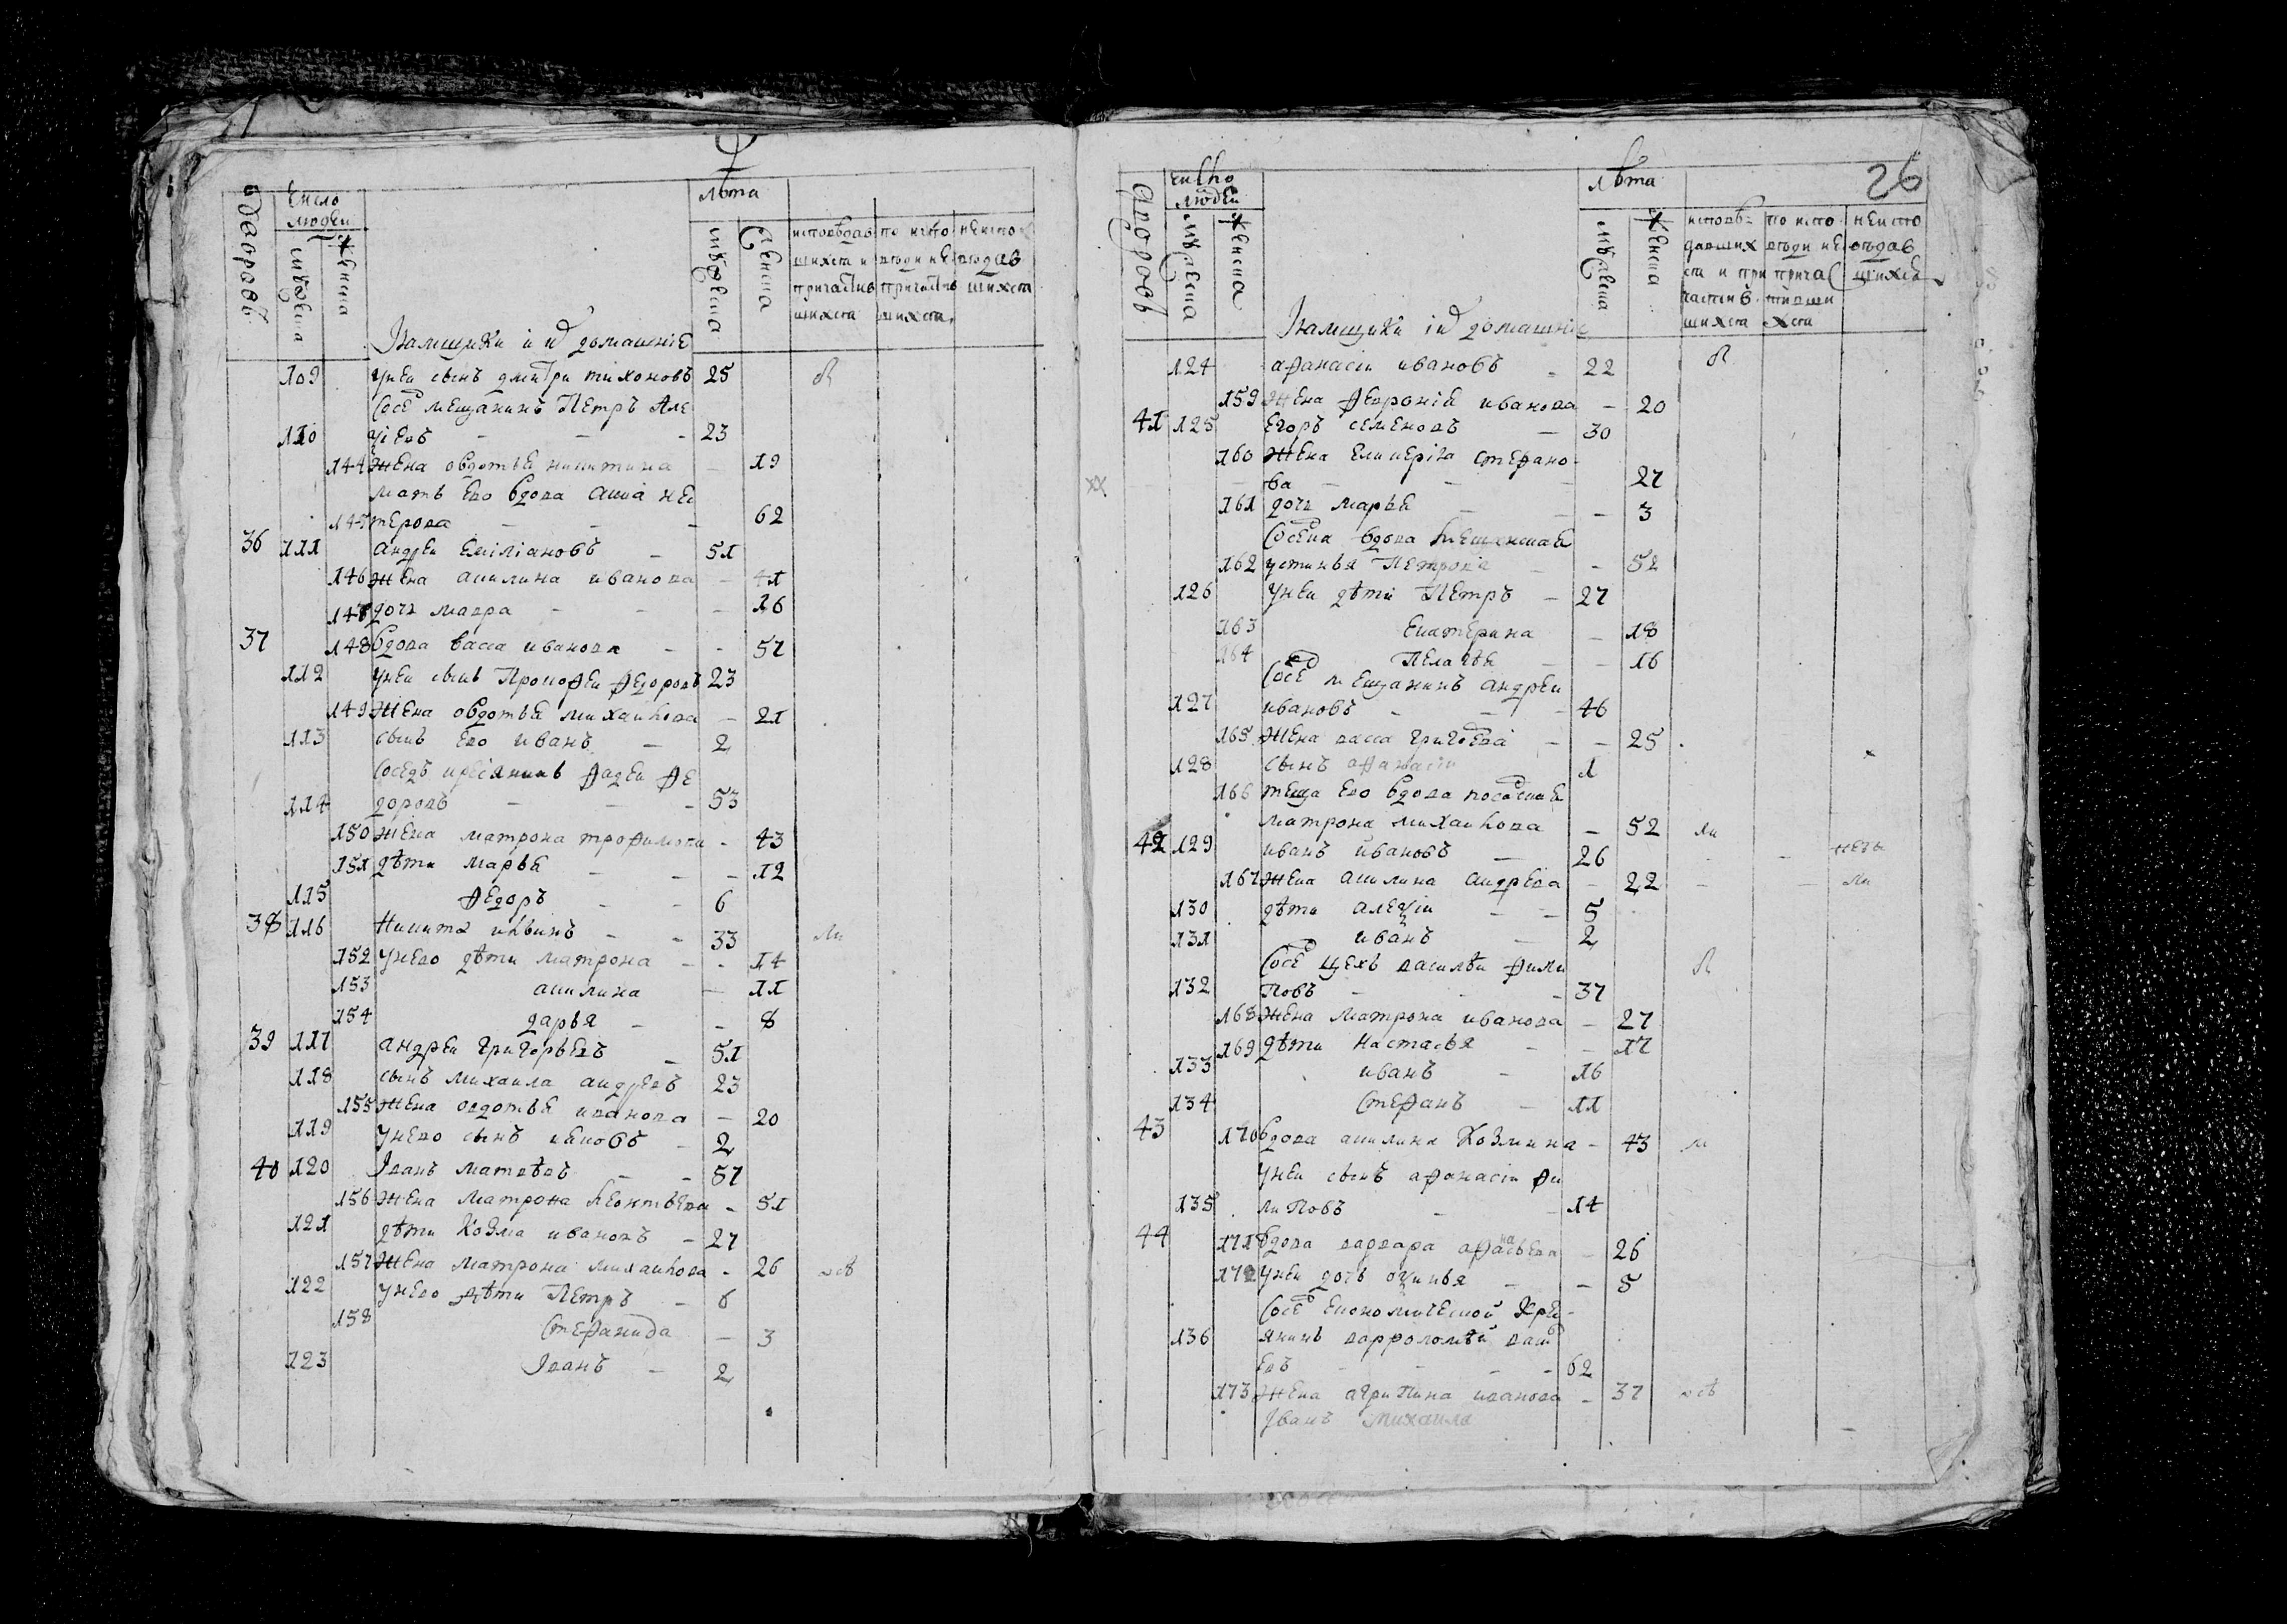 дворовъ
число
людеи
мужеска
женска
Ямщики и их домашние
лѣта
мужеска
женска
исповѣдав
шихся и
причастив
шихся
по испо
вѣди не
причастив
шихся
неиспо
вѣдав
шихся
109 унеи сынъ дмитри тихоновъ 25
Сосед мещанинъ Петръ Але
110 ѯіевъ - - - 23
144 жена овдотья никитина - 19
мать ево вдова анна нес
145 терова - - - 62
36 111 андреи Емiлiановъ - 51
146 жена акилина иванова - 41
147 дочь мавра - - - 16
37 148 вдова васса иванова - - 57
112 унеи сынъ Прокофеи федоровъ 23
149 жена овдотья михаилова - 21
113 сынъ ево иванъ - 2
Соседъ кресянинъ фадеи фе
114 доровъ - - - 53
150 жена матрона трофимова - 43
151 дѣти марья - - - 12
115 федоръ - - 6
38 116 Никита илвинъ - - 33
152 унево дѣти матрона - - 14
153 акилина - 11
154 дарья - - 8
39 117 андреи григорьевъ - 51
118 сынъ михаила андреевъ 23
155 жена овдотья иванова - 20
119 унево сынъ - 2
40 120 Iванъ матвѣевъ - - 57
156 жена матрона леонтьева - 51
121 дѣти козма ивановъ - 27
157 жена матрона михаилова - 26
122 унево дѣти Петръ - 6
158 Стефанида - 3
123 Iванъ - 2
26
дворовъ
число
людеи
мужеска
женска
Ямщики i их домашние
лѣта
мужеска
женска
исповѣ-
давших
ся и при
частив
шихся
по испо
вѣди не
прича
стивши
хся
неиспо
вѣдав
шихся
124 афанасiи ивановъ - 22
159 жена феврония иванова - 20
41 125 Егоръ семеновъ - 30
160 жена Екатерiна стефано-
ва - - - 27
161 дочь марья - - - 3
Соседка вдова мещанская
162 устинья Петрова - - 52
126 унеи дѣти Петръ - 27
163 екатерина - 18
164 Пелагея - - 16
Сосед мещанинъ андреи
127 ивановъ - - - 46
165 жена васса григорева - - 25
128 сынъ афанасiи 1
166 теща ево вдова посадская
матрона михаилова - 52
42 129 иванъ ивановъ - 26
167 жена акилина андреева - 22
130 дѣти алеѯiи - - 5
131 иванъ - 2
Сосед цехъ василѣи фили
132 повъ - - - 37
168 жена матрона иванова - 27
169 дѣти настасья - - 17
133 иванъ - 16
134 Стефанъ - 11
43 170 вдова акилина козмина - 43
унеи сынъ афанасiи фи
135 липовъ - - 14
44 171 вдова варвара афанасьева - 26
172 унеи дочь - - 5
Сосед економическои кре-
136 янинъ варфоломѣи
евъ - - - - 62
173 жена агрипина иванова - 37
Iванъ михаила